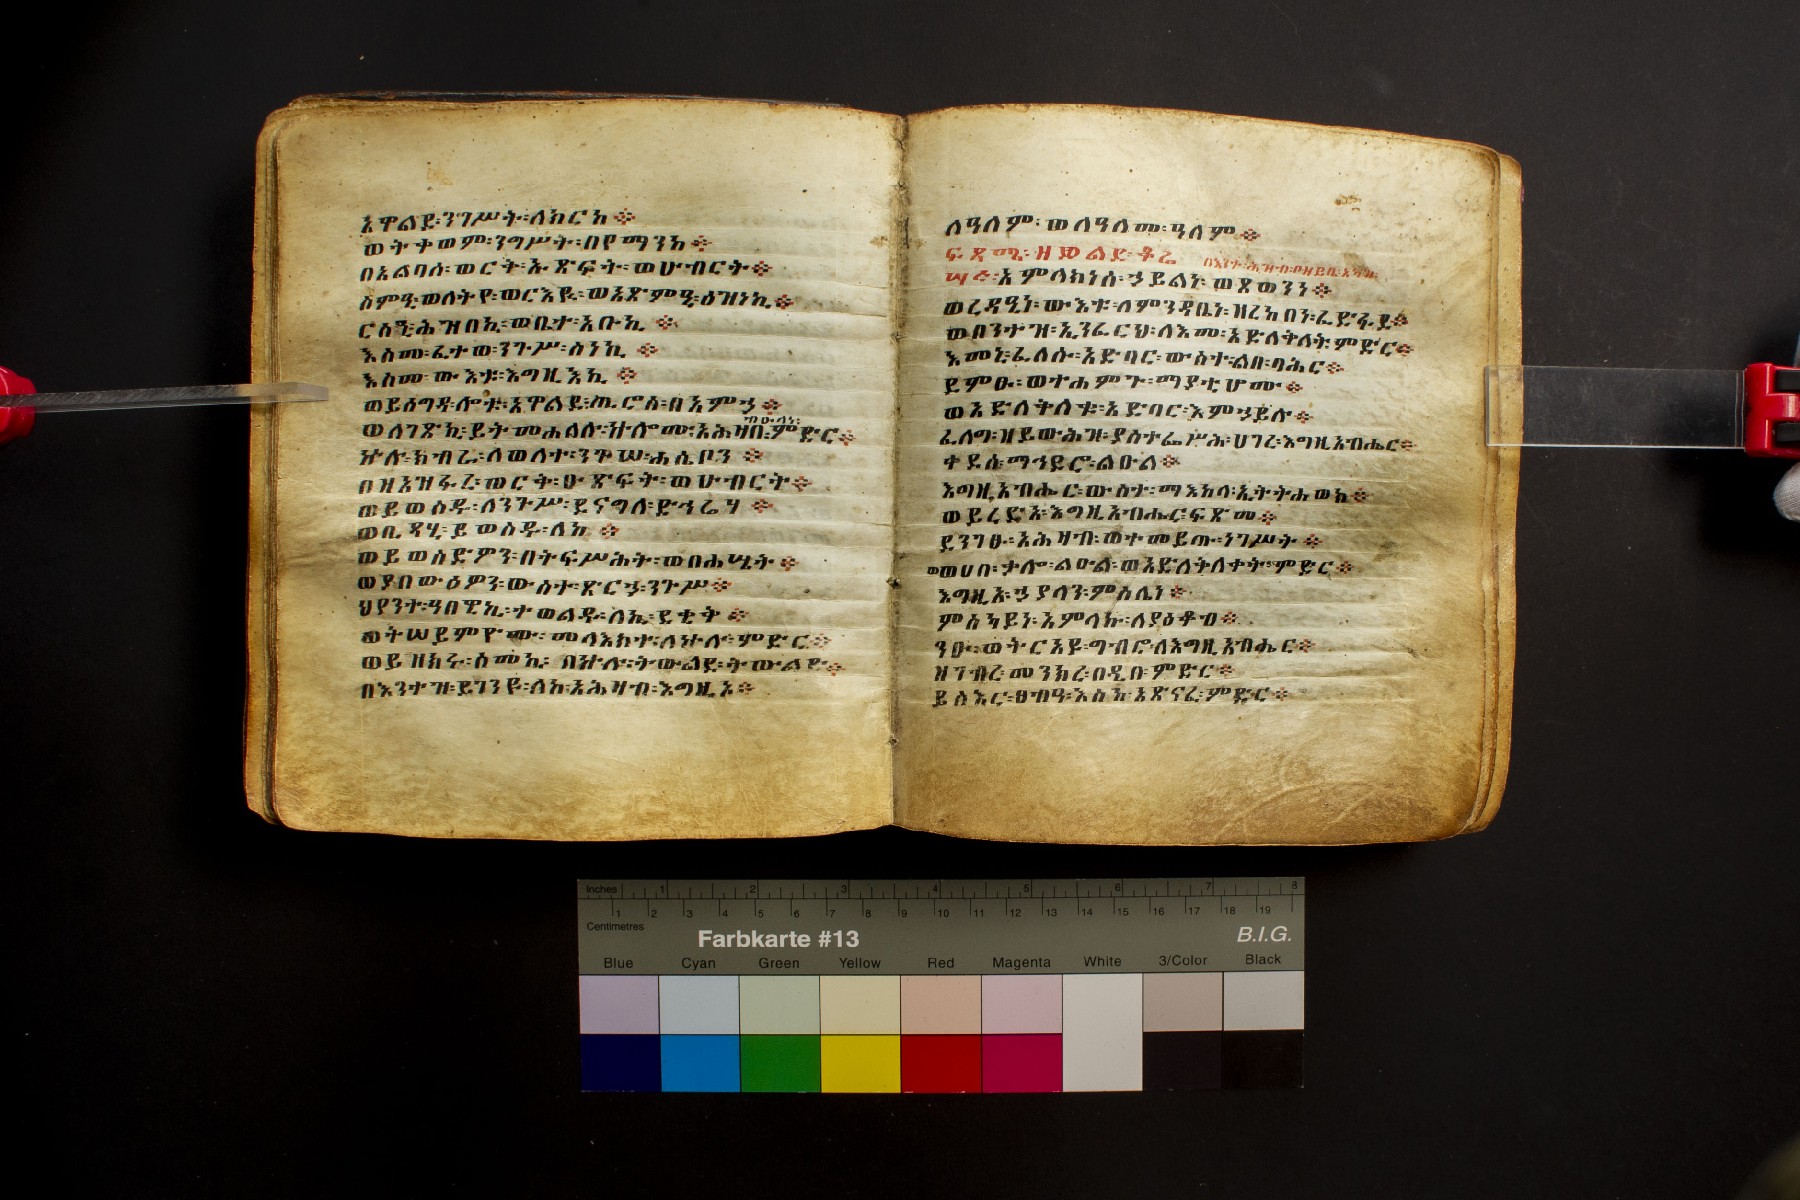 አዋልደ፡ንግሥት፡ለክርከ።
ወትቀወም፡ንግሥት፡በየማንከ።
በአልባሰ፡ወርቅ፡ዑጽፍት፡ወሁብርት።
ስምዒ፡ወለትየ፡ወርእዪ፡ወአጽምዒ፡ዕዝነኪ።
ርስዒ፡ሕዝበኪ፡ወቤተ፡አቡኪ።
እስመ፡ፈተወ፡ንጉሥ፡ስነኪ።
እስመ፡ውእቱ፡እግዚእኪ።
ወይሰግዳ፡ሎቱ፡አዋልደ፡ጢሮስ፡በአምኃ።
ብዑላነ፡
ወለገጽኪ፡ይትመሐለሉ፡ኵሎሙ፡አሕዛበ፡ምድር።
ኵሉ፡ክብራ፡ለወለተ፡ንጉሠ፡ሐሴቦን።
በዘአዝፋረ፡ወርቅ፡ዑጽፍት፡ወሁብርት።
ወይወስዱ፡ለንጉሥ፡ደናግለ፡ድኅሬሃ።
ወቢጻሂ፡ይወስዱ፡ለከ።
ወይወስድዎን፡በትፍሥሕት፡ወበሐሤት።
ወያበውዕዎን፡ውስተ፡ጽርኃ፡ንጉሥ።
ህየንተ፡ዓበዊኪ፡ተወልዱ፡ለኪ፡ደቂቅ።
ወትሠይምዮሙ፡መላእክተ፡ለኵሉ፡ምድር።
ወይዝክሩ፡ስመኪ፡በኵሉ፡ትውልደ፡ትውልድ።
በእንተዝ፡ይገንዩ፡ለከ፡አሕዛብ፡እግዚኦ።
ለዓለም፡ወለዓለመ፡ዓለም።
ፍጻሜ፡ዘውልደ፡ቆሬ
አምላክነሰ፡ኃይልነ፡ወጸወንነ።
ወረዳዒነ፡ውእቱ፡ለምንዳቤነ፡ዝረከበነ፡ፈድፋደ።
ወበንተዝ፡ኢንፈርህ፡ለእመ፡አድለቅለቀት፡ምድር።
እመኒ፡ፈለሱ፡አድባር፡ውስተ፡ልበ፡ባሕር።
ደምፁ፡ወተሐምጉ፡ማያቲሆሙ።
ወአድለቅለቁ፡አድባር፡እምኃይሉ።
ፈለግ፡ዘይውሕዝ፡ያስተፌሥሕ፡ሀገረ፡እግዚአብሔር።
ቀደሰ፡ማኅደሮ፡ልዑል።
እግዚአብሔር፡ውስተ፡ማእከላ፡ኢትትሐወክ።
ወይረድኣ፡እግዚአብሔር፡ፍጽመ።
ደንገፁ፡አሕዛብ፡ወተመይጡ፡ነገሥት።
ወሀበ፡ቃሎ፡ልዑል፡ወአድለቅለቀት፡ምድር።
እግዚአ፡ኃያላን፡ምስሌነ።
ምስካይነ፡አምላኩ፡ለያዕቆብ።
ንዑ፡ወትርአዩ፡ግብሮ፡ለእግዚአብሔር።
ዘገብረ፡መንክረ፡በዲበ፡ምድር።
ይስእር፡ፀብዓ፡እስከ፡አጽናፈ፡ምድር።
Inches 1 2 3 4 5 6 7 8
1 2 3 4 5 6 7 8 9 10 11 12 13 14 15 16 17 18 19
Centimetres
Farbkarte #13 B.I.G.
Blue Cyan Green Yellow Red Magenta White 3/Color Black